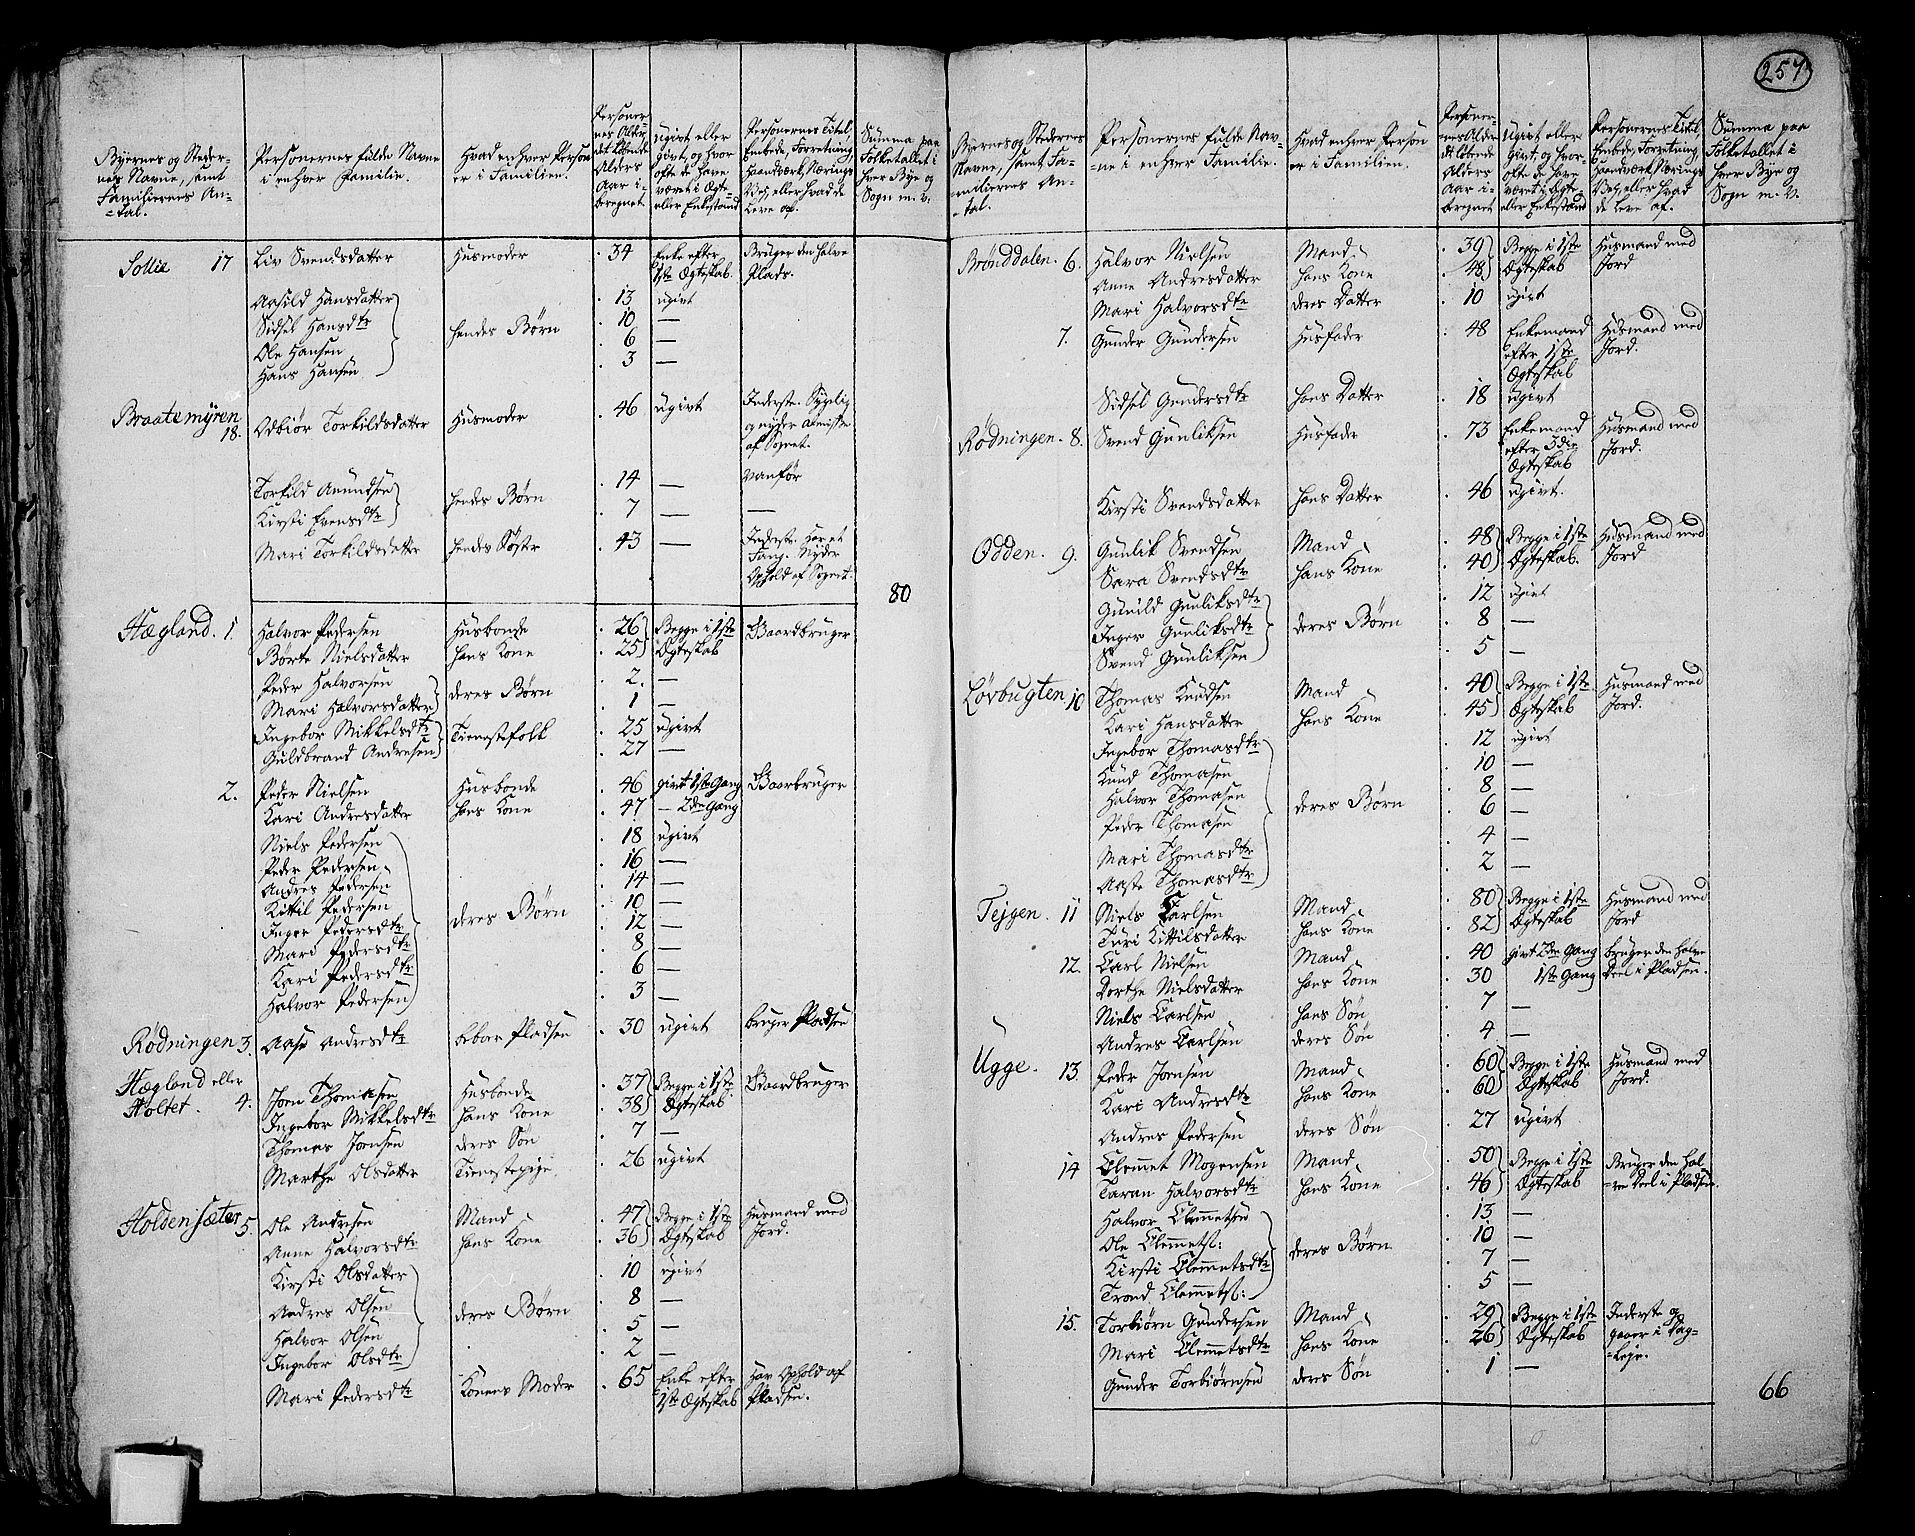 257
Byernes og Steder-
nes Navne, samt
Familiernes An-
-tal.
Personernes fulde Navne
i enhver Familie.
Hvad enhver Person
er i Familien.
Personer-
nes Alder
det løbende
Alders
Aar i-
beregnet
Ugivt eller
givt, og hvor
ofte de have
været i Ægte-
eller Enkestand
Personernes Titel,
Embede, Forretning,
Haandværk, Nærings
Vej, eller hvad de
Leve af.
Summa paa
Folketallet i
hver Bye og
Sogn m. v.
Sollie 17 Liv Svendsdatter Husmoder 34 Enke efter 1ste Ægteskab Bruger den halve Plads.
Aasild Hansdatter 13 ugivt
Sidsel Hansdtr hendes Børn 10 —
Ole Hansen 6 —
Hans Hansen 3 —
Braatemyren 18. Odbiør Torkildsdatter Husmoder 46 ugivt Inderste. Sygelig og nyder Almisse af Sognet.
Torkild Amundsen hendes Børn 14 — vanfør
Kirsti Evensdtr 7 — —
Mari Torkildsdatter hendes Søster 43 — Inderste. Har et Fang. Nyder Ophold af Sognet.
80
Hægland. 1 Halvor Pedersen Husbonde 26 Begge i 1ste Gaardbruger
Børte Nielsdatter hans Kone 25 Ægteskab
Peder Halvorsen deres Børn 2. —
Mari Halvorsdatter 1 —
Ingebor Mikkelsdtr Tienestefolk 25 ugivt
Guldbrand Andresen 27 —
2. Peder Nielsen Husbonde 46 givt 1ste Gang Gaarbruger
Kari Andresdatter hans Kone 47 — 2den Gang
Niels Pedersen 18 ugivt
Peder Pedersen 16 —
Andres Pedersen 14 —
Kittil Pedersen deres Børn 10 —
Inger Pedersdtr 12 —
Mari Pedersdtr 8 —
Kari Pedersdtr 6 —
Halvor Pedersen 3 —
Rødningen 3. Aase Andresdtr beboer Pladsen 30 ugivt bruger Pladsen
Hægland eller
Holtet. 4. Jon Thomasen Husbonde 37 Begge i 1ste Gaardbruger
Ingebor Mikkelsdtr hans Kone 38 Ægteskab
Thomas Jonsen deres Søn 7 —
Marthe Olsdatter Tienestepige 26 ugivt
Holdensæter 5. Ole Andresen Mand 47 Begge i 1ste Husmand med
Anne Halvorsdtr hans Kone 36 Ægteskab Jord.
Kirsti Olsdatter 10 ugivt
Andres Olsen deres Børn 8 —
Halvor Olsen 5 —
Ingebor Olsdtr 2 —
Mari Pedersdtr Konens Moder 65 Enke efter 1ste Ægteskab Har Ophold af Pladsen.
Byernes og Stedernes
Navne, samt Fa-
miliernes An-
-tal.
Personernes fulde Nav-
-ne i enhver Familie.
Hvad enhver Person
er i Familien.
Personer-
nes Alder
det løbende
Alders
Aar i-
beregnet
Ugivt eller
Givt, og hvor-
ofte de have
været i Ægte-
eller Enkestand
Personernes Titel,
Embede, Forretning,
Haandværk, Nærings
Vej, eller hvad
de Leve af.
Summa paa
Folketallet i
hver Bye og
Sogn m. v.
Brønddalen. 6. Halvor Nielsen Mand 39 Begge i 1ste Husmand med
Anne Andresdatter hans Kone 48 Ægteskab Jord
Mari Halvorsdtr deres Datter 10 ugivt
7. Gunder Gundersen Husfader 48 Enkemand efter 1ste Ægteskab Husmand med Jord.
Sidsel Gundersdtr hans Datter 18 ugivt
Rødningen. 8. Svend Gunliksen Husfader 73 Enkemand efter 3die Ægteskab Husmand med Jord.
Kirsti Svendsdatter hans Datter 46 ugivt.
Odden. 9. Gunlik Svendsen Mand 48 Begge i 1ste Husmand med
Sara Svendsdtr hans Kone 40 Ægteskab. Jord
Gunild Gunliksdtr 12 ugivt
Inger Gunliksdtr deres Børn 8 —
Svend Gunliksen 5 —
Løvbugten 10 Thomas Knudsen Mand 40 Begge i 1ste Husmand med
Kari Hansdatter hans Kone 45 Ægteskab Jord.
Ingebor Thomasdtr 12 ugivt
Knud Thomasen 10 —
Halvor Thomasen deres Børn 8 —
Peder Thomasen 6 —
Mari Thomasdtr 4 —
Aaste Thomasdtr 2 —
Tejgen. 11 Niels Carlsen Mand 80 Begge i 1ste Husmand med
Turi Kittilsdatter hans Kone 82 Ægteskab Jord
12. Carl Nielsen Mand 40 givt 2den Gang bruger den halve
Dorthe Nielsdatter hans Kone 30 1ste Gang Deel i Pladsen.
Niels Carlsen hans Søn 7 —
Andres Carlsen deres Søn 4 —
Ugge. 13. Peder Jonsen Mand 60 Begge i 1ste Husmand med
Kari Andresdtr hans Kone 60 Ægteskab Jord.
Andres Pedersen deres Søn 27 ugivt
14 Clemmet Mogensen Mand 50 Begge i 1ste Bruger den hal-
Taran Halvorsdtr hans Kone 46 Ægteskab -ve Deel i Pladsen.
Halvor Clemmetsen 13 —
Ole Clemmets: deres Børn 10 —
Kirsti Clemmetsdtr 7 —
Trond Clemmets: 5 —
15. Torbiørn Gundersen Mand 29 Begge i 1ste Inderste og
Mari Clemmetsdtr hans Kone 26 Ægteskab gaaer i Dag-
Gunder Torbiørnsen deres Søn 1 — -Leje.
66